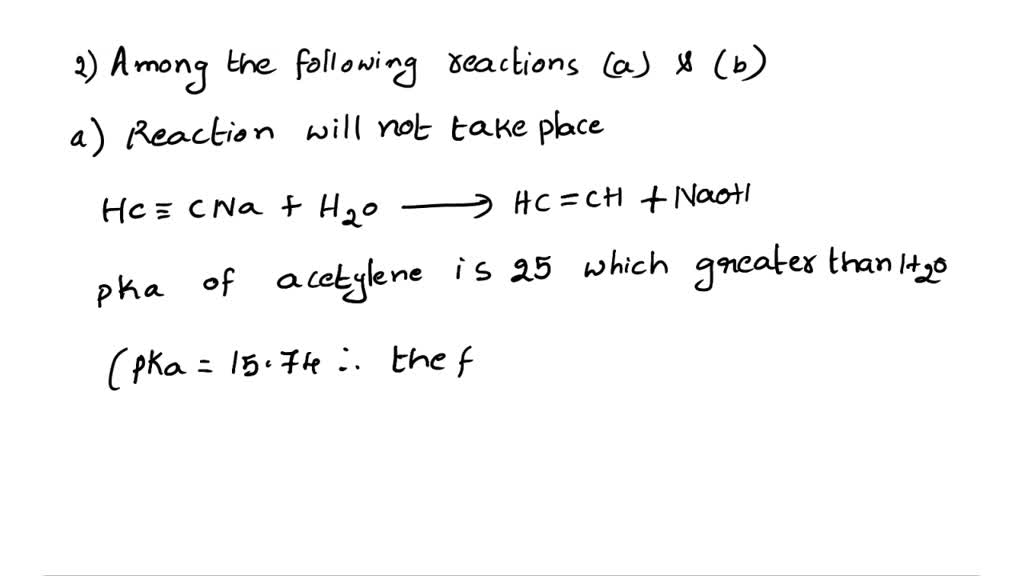 2) Among the following reactions (a) & (b)
a) Reaction will not take place
HC ≡ CNa + H2O ⟶ HC = CH + NaOH
pka of acetylene is 25 which greater than H2O
(pKa = 15.74 ∴ the f